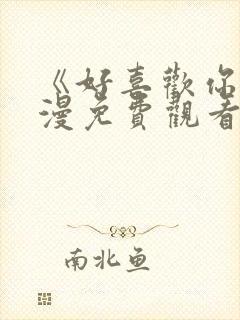 《好喜歡你
漫免費觀看
南北魚